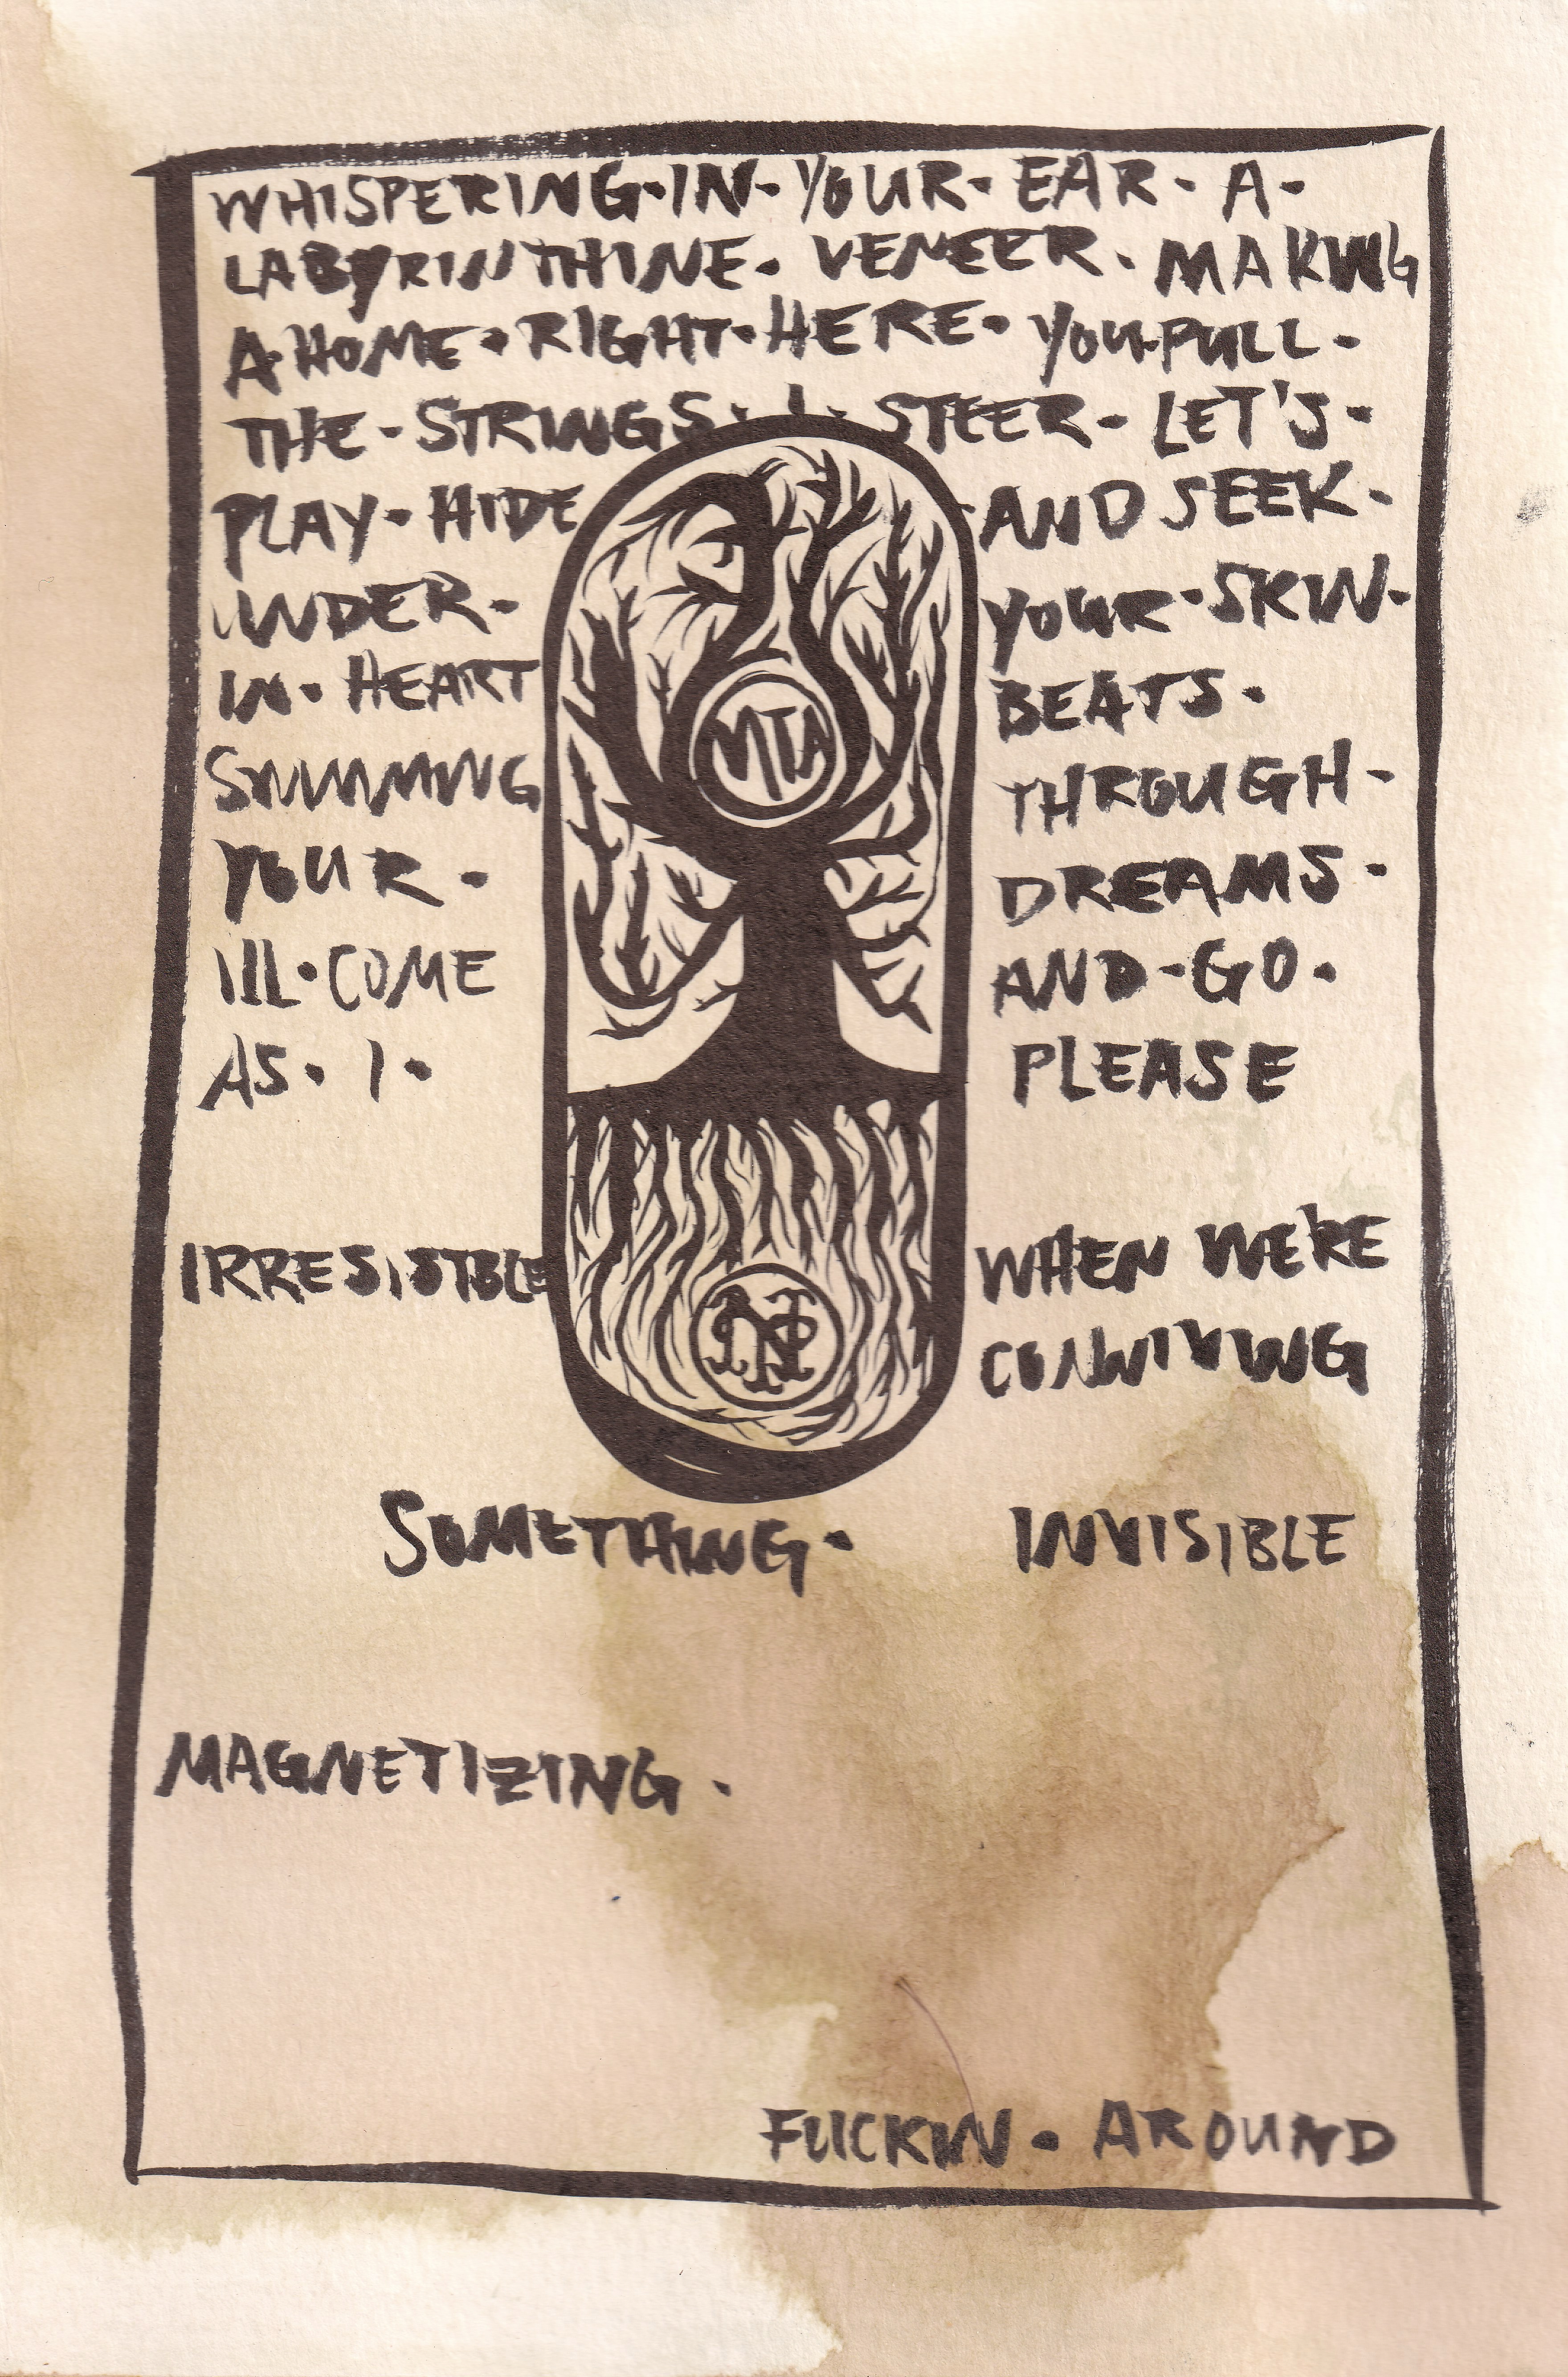 WHISPERING·IN·YOUR·EAR·A·
LABYRINTHINE·VENEER·MAKING
A·HOME·RIGHT·HERE·YOU·PULL·
THE·STRINGS·I·STEER·LET'S·
PLAY·HIDE AND SEEK·
UNDER· YOUR·SKIN·
IN·HEART BEATS·
SWIMMING THROUGH·
YOUR· DREAMS·
I'LL·COME AND·GO·
AS·I· PLEASE
MTA
IRRESISTIBLE WHEN WE'RE
CONNIVING
SOMETHING· INVISIBLE
MAGNETIZING·
FUCKIN·AROUND